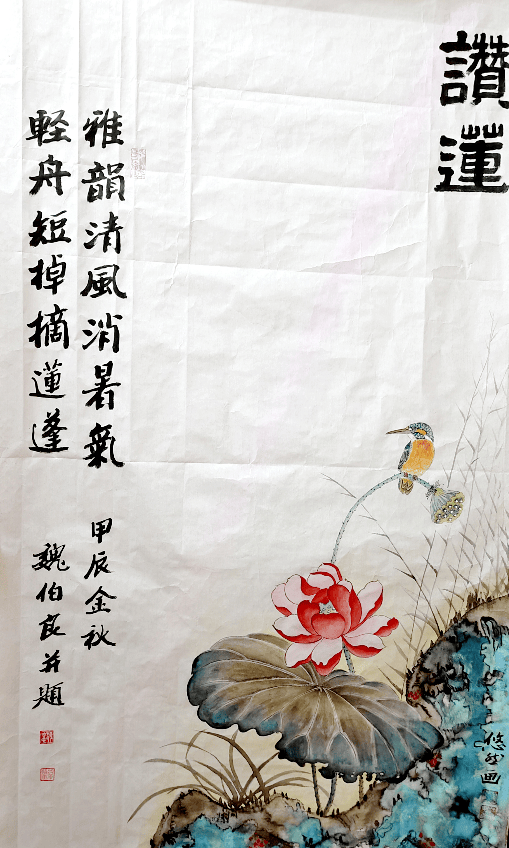 讚蓮
雅韻清風消暑氣
輕舟短掉摘蓮蓬
甲辰金秋
魏伯良并題
悠然画